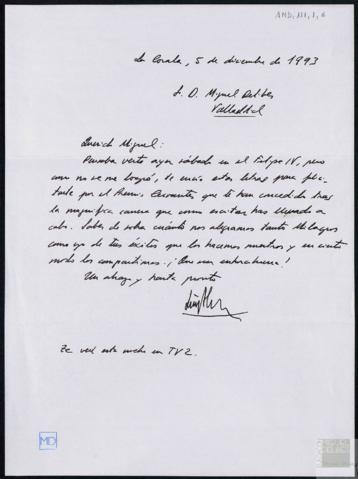 AMD, 111, 1, 6
La Coruña, 5 de diciembre de 1993
S. D. Miguel Delibes
Valladolid
Querido Miguel:
Pensaba verte ayer sábado en el Felipe IV, pero
como no se me logró, te envío estas letras para felici-
tarte por el Premio Cervantes que te han concedido tras
la magnífica carrera que como escritor has llevado a
cabo. Sabes de sobra cuánto nos alegramos tanto Milagros
como yo de tus éxitos que los hacemos nuestros y en cierto
modo los compartimos. ¡Que sea enhorabuena!
Un abrazo y hasta pronto
Te veré esta noche en TV2.
MD